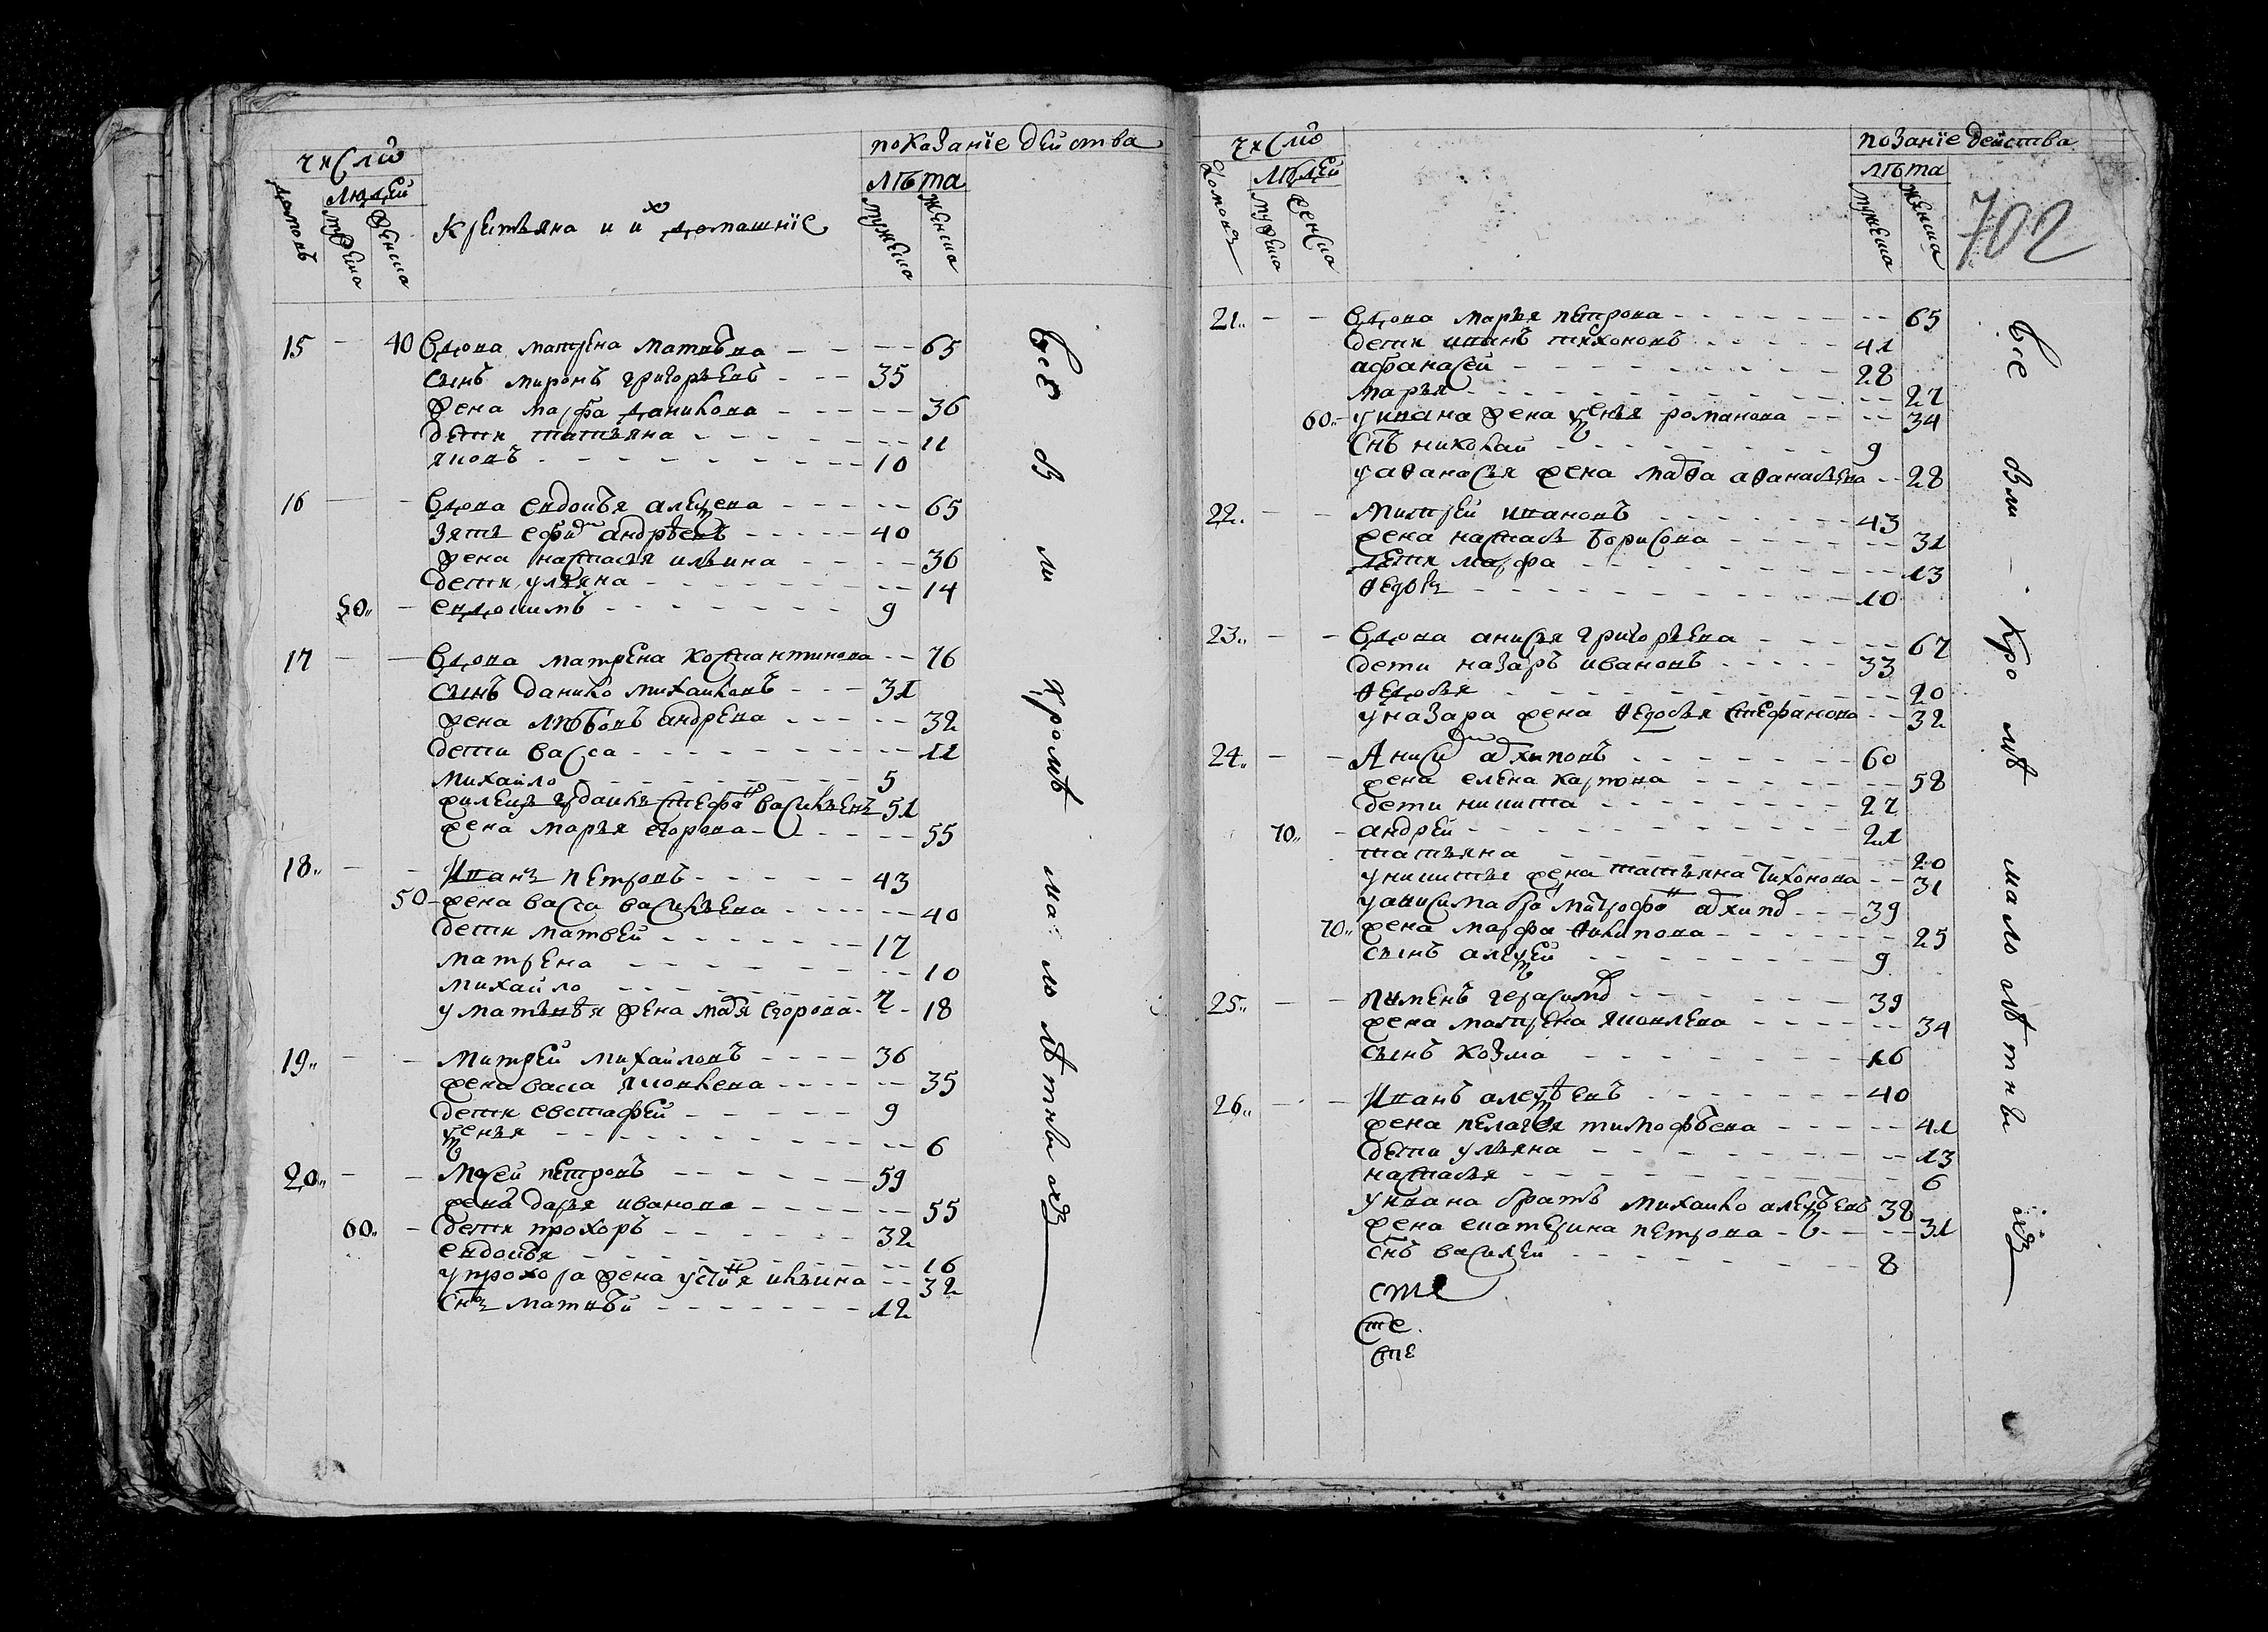 число
домовъ
людей
мужеска
женска
крестьяна и ихъ домашніе
показаніе действа
лѣта
мужеска
женска
15 - 40 вдова матрена матвѣва - - - - 65
сынъ миронъ григорьевъ - - - 35
жена марфа данилова - - - - - 36
дети татьяна - - - - - - - 11
яковъ - - - - - - - - - 10
16 - - вдова евдокѣя алексева - - - - - 65
зять ефимъ андрѣевъ - - - - - 40
жена настасья ильина - - - - - 36
дети ульяна - - - - - - - - 14
50 - евдокимъ - - - - - - - 9
17 - - вдова матрена костантинова - - 76
сынъ данило михаиловъ - - - 31
жена любовь андрева - - - - - 32
дети васса - - - - - - - - - 11
михайло - - - - - - - - - 5
стефанъ васильевъ 51
жена марья егорова - - - - - - 55
18 - - иванъ петровъ - - - - - - 43
50 - жена васса васильева - - - - - - 40
дети матвей - - - - - - - 17
матрена - - - - - - - - 10
михайло - - - - - - - - 7
у матвѣя жена марья егорова - - 18
19 - - митрей михайловъ - - - - 36
жена васса яковлева - - - - - - 35
дети евстафей - - - - - - 9
ксенья - - - - - - - - - - 6
20 - - мосей петровъ - - - - - - 59
жена дарья иванова - - - - - - 55
60 - дети прохоръ - - - - - - 32
евдокѣя - - - - - - - - - 16
у прохора жена устинья ильина - - 32
сынъ матвѣй - - - - - - - 12
все вли кромѣ малолѣтныхъ
число
домовъ
людей
мужеска
женска
позаніе действа
лѣта
мужеска
женска
702
21 - - вдова марья петрова - - - - - - - - 65
дети иванъ тихоновъ - - - - - 41
афанасей - - - - - - - - - 28
марья - - - - - - - - - - - 27
60 - у ивана жена ксенья романова - - - - 34
снъ николай - - - - - - - - 9
у аѳанасья жена марѳа аѳанасьева - - 28
22 - - митрей ивановъ - - - - - - - 43
жена настасья борисова - - - - - - 31
дети марфа - - - - - - - - - 13
ѳедоръ - - - - - - - - - - 10
23 - - вдова анисья григорьева - - - - - - 67
дети назаръ ивановъ - - - - - 33
ѳедосья - - - - - - - - - - - 20
у назара жена ѳедосья стефанова - - 32
24 - - анисимъ архиповъ - - - - - - 60
жена елена карпова - - - - - - - 58
дети никита - - - - - - - - 27
70 - андрей - - - - - - - - - - 21
татьяна - - - - - - - - - - 20
у никиты жена татьяна тихонова - - 31
у анисима братъ митрофанъ архиповъ - - - 39
70 жена марфа - - - - - - - 25
сынъ алексей - - - - - - - - 9
25 - - пименъ герасимовъ - - - - - - 39
жена матрена яковлева - - - - - - 34
сынъ козма - - - - - - - - 16
26 - - иванъ алексѣевъ - - - - - - - 40
жена пелагея тимофѣева - - - - - 41
дети ульяна - - - - - - - - 13
настасья - - - - - - - - - - 6
у ивана братъ михайло алексѣевъ 38
жена екатерина петрова - - - - 31
снъ василей - - - - - - - - 8
сте
сте
сте
все вли - кромѣ малолѣтныхъ